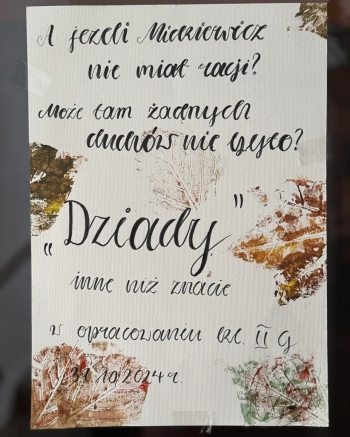 A jeżeli Mickiewicz
nie miał racji?
Może tam żadnych
duchów nie było?
"Dziady"
inne niż znacie
w opracowaniu kl. II G
31.10.2024 r.